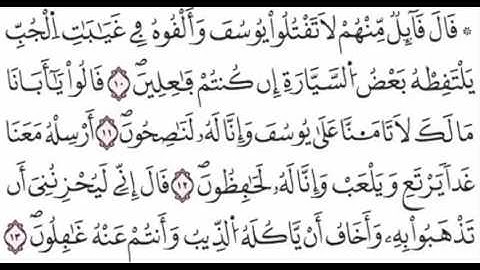 * قَالَ قَآئِلٌ مِّنْهُمْ لَا تَقْتُلُواْ يُوسُفَ وَأَلْقُوهُ فِے غَيَٰبَٰتِ اِ۬لْجُبِّ
يَلْتَقِطْهُ بَعْضُ اُ۬لسَّيَّارَةِ إِن كُنتُمْ فَٰعِلِينَۖ ١٠ قَالُواْ يَٰٓأَبَانَا
مَا لَكَ لَا تَامَ۬نَّا عَلَىٰ يُوسُفَ وَإِنَّا لَهُۥ لَنَٰصِحُونَۖ ١١ أَرْسِلْهُ مَعَنَا
غَداٗ يَرْتَعِ وَيَلْعَبْ وَإِنَّا لَهُۥ لَحَٰفِظُونَۖ ١٢ قَالَ إِنِّے لَيُحْزِنُنِےَ أَن
تَذْهَبُواْ بِهِۦ وَأَخَافُ أَنْ يَّاكُلَهُ اُ۬لذِّيبُ وَأَنتُمْ عَنْهُ غَٰفِلُونَۖ ١٣